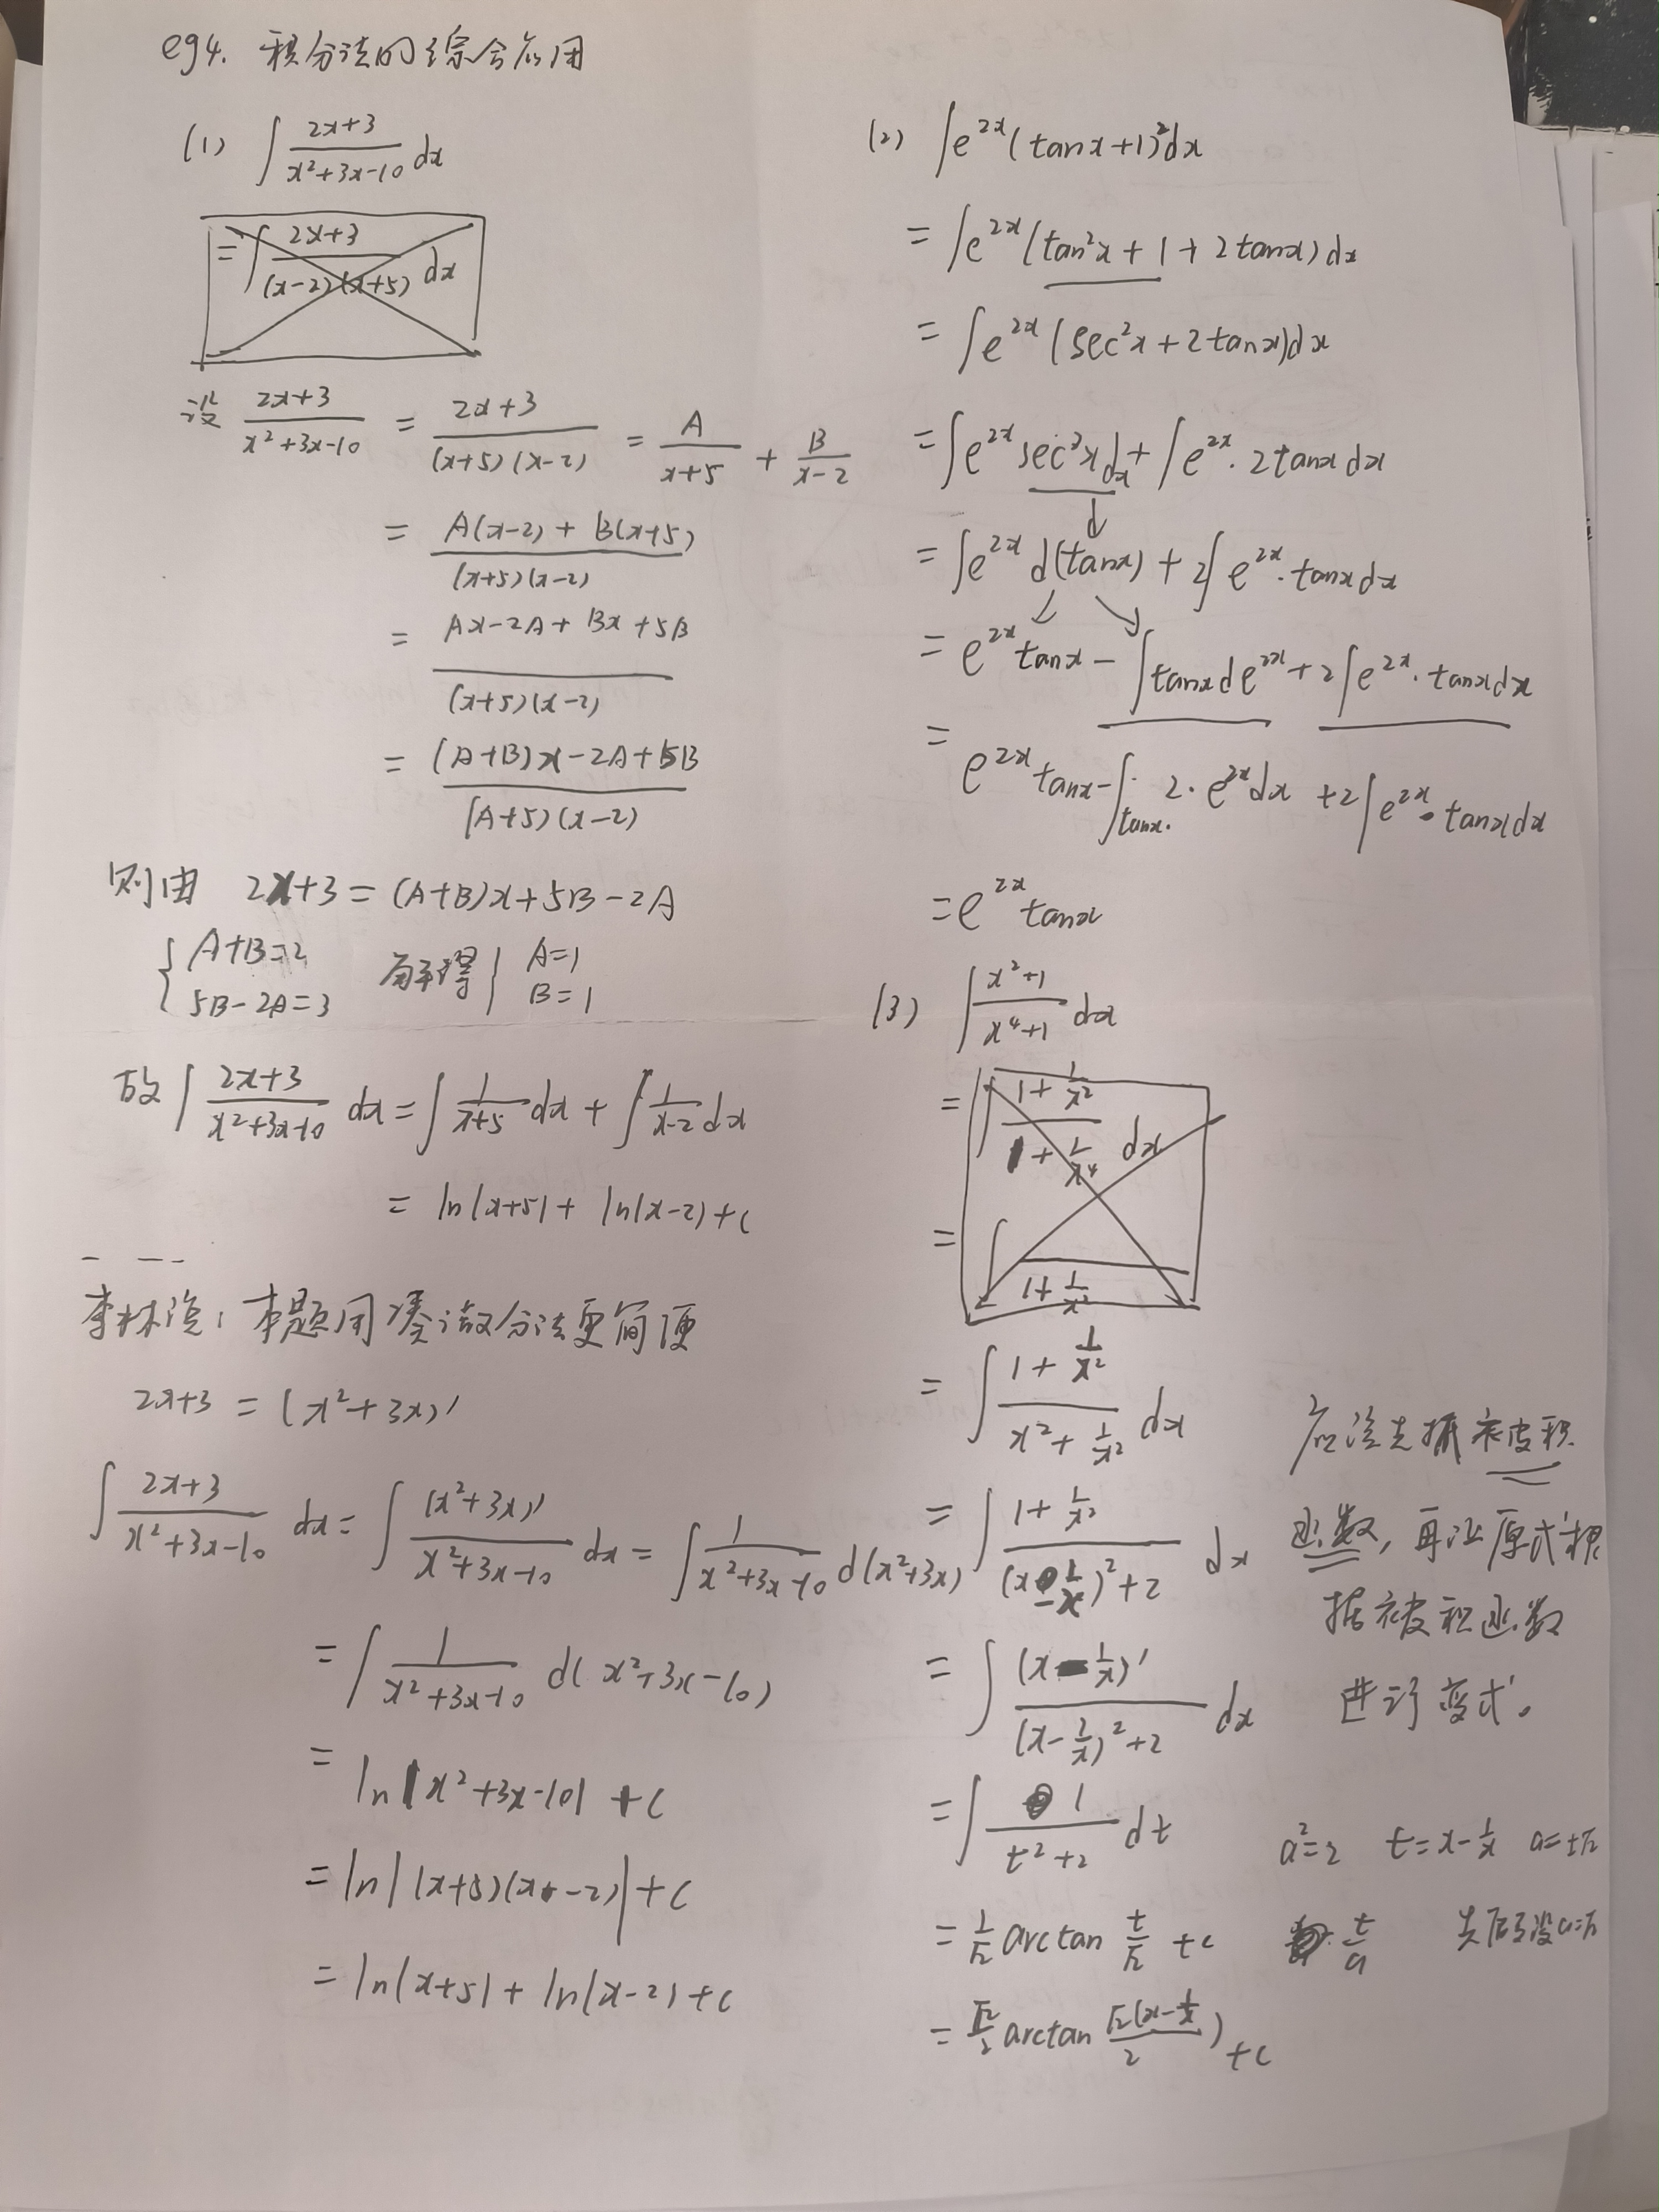 eg4. 积分法的综合应用
(1) ∫ (2x+3)/(x²+3x-10) dx
= ∫ (2x+3)/((x-2)(x+5)) dx
设 (2x+3)/(x²+3x-10) = (2x+3)/((x+5)(x-2)) = A/(x+5) + B/(x-2)
= (A(x-2) + B(x+5))/((x+5)(x-2))
= (Ax-2A+Bx+5B)/((x+5)(x-2))
= ((A+B)x-2A+5B)/((A+5)(x-2))
则由 2x+3 = (A+B)x+5B-2A
{ A+B=2
5B-2A=3 解得 { A=1
B=1
故 ∫ (2x+3)/(x²+3x-10) dx = ∫ 1/(x+5) dx + ∫ 1/(x-2) dx
= ln|x+5| + ln|x-2| + C
李林说: 本题用凑微分法更简便
2x+3 = (x²+3x)'
∫ (2x+3)/(x²+3x-10) dx = ∫ (x²+3x)'/(x²+3x-10) dx = ∫ 1/(x²+3x-10) d(x²+3x)
= ∫ 1/(x²+3x-10) d(x²+3x-10)
= ln|x²+3x-10| + C
= ln|(x+5)(x-2)| + C
= ln|x+5| + ln|x-2| + C
(2) ∫e^{2x}(tanx+1)²dx
= ∫e^{2x}(tan²x+1+2tanx)dx
= ∫e^{2x}(sec²x+2tanx)dx
= ∫e^{2x}sec²xdx + ∫e^{2x}·2tanxdx
= ∫e^{2x}d(tanx) + 2∫e^{2x}·tanxdx
= e^{2x}tanx - ∫tanxde^{2x} + 2∫e^{2x}·tanxdx
= e^{2x}tanx - ∫tanx·2·e^{2x}dx + 2∫e^{2x}·tanxdx
= e^{2x}tanx
(3) ∫ (x²+1)/(x⁴+1) dx
= ∫ (1+1/x²)/(1+1/x⁴) dx
= ∫ /(1+1/x²)
= ∫ (1+1/x²)/(x²+1/x²) dx
= ∫ (1+1/x²)/((x-1/x)²+2) dx
= ∫ (x-1/x)'/((x-1/x)²+2) dx
= ∫ 1/(t²+2) dt a²=2 t=x-1/x a=±√2
= 1/√2 arctan t/√2 +c t/a
= √2/2 arctan (√2(x-1/x)/2) +c
被积
函数, 再让原式根
据被积函数
进行变式。